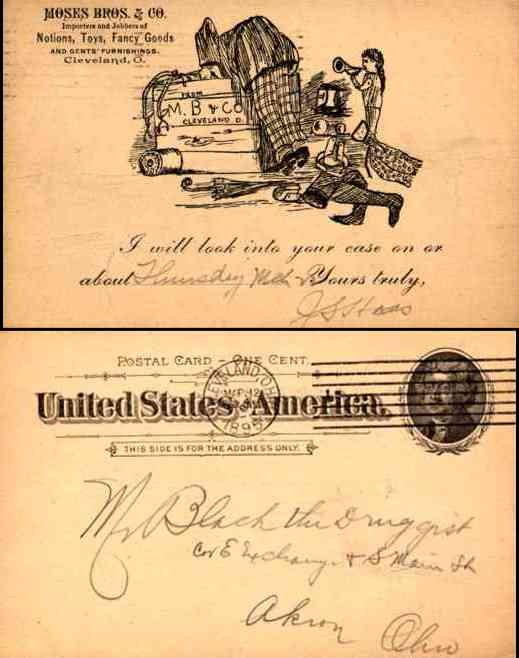 MOSES BROS. & CO.
Importers and Jobbers of
Notions, Toys, Fancy Goods
AND GENTS' FURNISHINGS.
Cleveland, O.
FROM
M. B & CO
CLEVELAND O.
I will look into your case on or
about Thursday Mch Yours truly,
J S Haas
POSTAL CARD - ONE CENT.
United States America.
CLEVELAND, OHIO
1895
THIS SIDE IS FOR THE ADDRESS ONLY.
Mr Black the Druggist
Cor E Exchange & S Main St
Akron Ohio